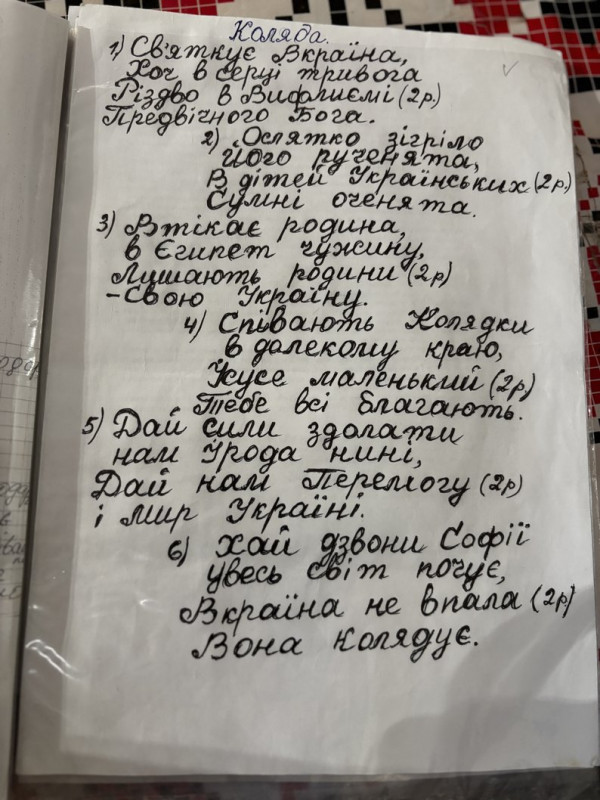 Коляда.
1) Святкує Вкраїна,
Хоч в серці тривога
Різдво в Вифлиємі (2р.)
Предвічного Бога.
2) Ослятко зігріло
Його рученята,
В дітей Українських (2р.)
Сумні оченята.
3) Втікає родина,
в Єгипет чужину,
Лишають родини (2р)
-Свою Україну.
4) Співають Колядки
в далекому краю,
Ісусе маленький (2р)
Тебе всі благають.
5) Дай сили здолати
нам Ірода нині,
Дай нам Перемогу (2р)
і мир Україні.
6) Хай дзвони Софії
увесь світ почує,
Вкраїна не впала (2р)
Вона колядує.